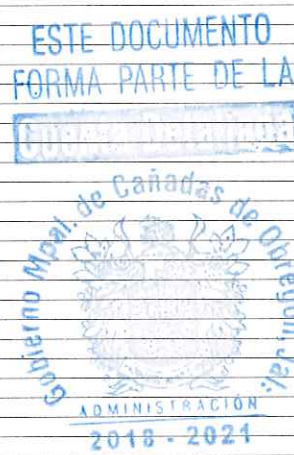 ESTE DOCUMENTO
FORMA PARTE DE LA
Gobierno Mpal. de Cañadas de Obregon, Jal.
ADMINISTRACIÓN
2018 - 2021